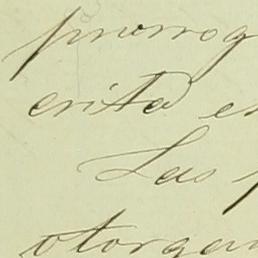 prorrog
crita e
Las
otorga